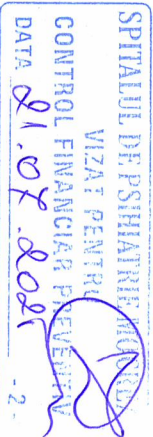 SPITALUL DE PSIHIATRIE
VIZAT PENTRU
CONTROL FINANCIAR PREVENTIV
DATA 21.07.2025 - 2 -